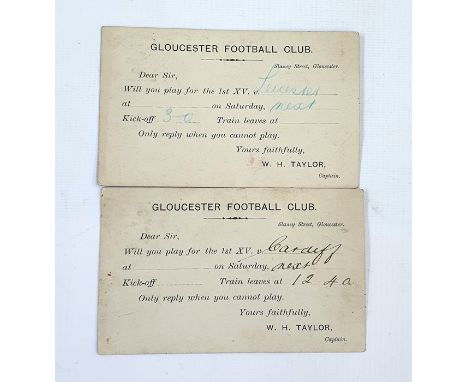 GLOUCESTER FOOTBALL CLUB.
Slaney Street, Gloucester.
Dear Sir,
Will you play for the 1st XV. v. Leicester
at on Saturday, next
Kick-off 3-0 Train leaves at
Only reply when you cannot play.
Yours faithfully,
W. H. TAYLOR,
Captain.
GLOUCESTER FOOTBALL CLUB.
Slaney Street, Gloucester.
Dear Sir,
Will you play for the 1st XV. v. Cardiff
at on Saturday, next
Kick-off Train leaves at 12 40
Only reply when you cannot play.
Yours faithfully,
W. H. TAYLOR,
Captain.